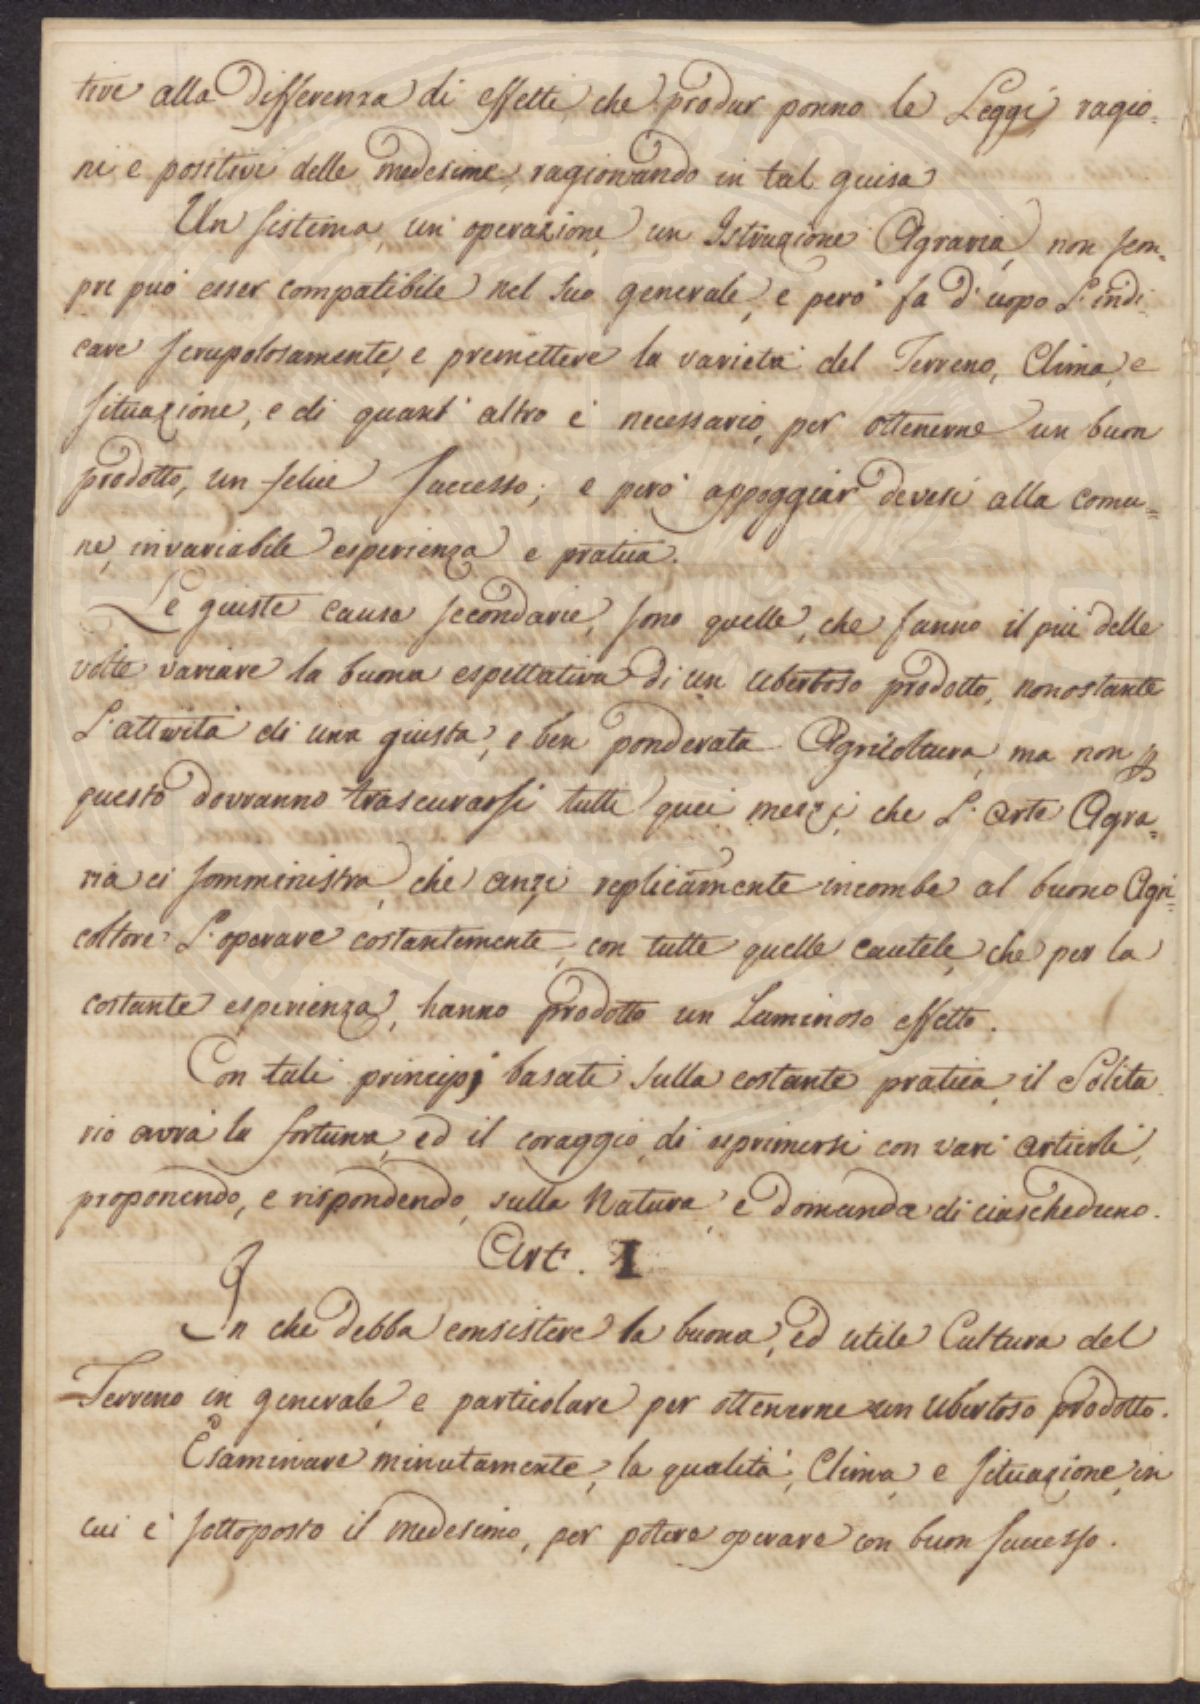 tive alla Differenza di effetti, che produr ponno le Leggi ragio-
ni e positivi delle medesime, ragionando in tal guisa
Un sistema, un' operazione, un Istruzione Agraria, non sem-
pre può esser compatibile nel suo generale, e però fa d'uopo L'indi-
care scrupolosamente, e premettere la varietà del Terreno, Clima, e
situazione, e di quant' altro è necessario, per ottenerne un buon
prodotto, un felice successo; e però appoggiar devesi alla comu-
ne, invariabile esperienza e pratica.
Le giuste cause secondarie, sono quelle, che fanno il più delle
volte variare la buona espettativa di un ubertoso prodotto, nonostante
L'attività di una giusta, e ben ponderata Agricoltura, ma non p
questo dovranno trascurarsi tutti quei mezzi, che L'arte Agra-
ria ci somministra, che anzi replicamente incombe al buono Agri-
coltore L'operare costantemente, con tutte quelle cautele, che per la
costante esperienza, hanno prodotto un Luminoso effetto.
Con tali principj basati sulla costante pratica, il Solita
rio avrà la fortuna, ed il coraggio, di esprimersi con vari articoli,
proponendo, e rispondendo, sulla Natura, e Domanda di ciascheduno.
Art. I
In che Debba consistere la buona, ed utile Cultura del
Terreno in generale, e particolare per ottenerne un Ubertoso prodotto.
Esaminare minutamente, la qualità, Clima, e situazione, in
cui è sottoposto il medesimo, per potere operare con buon successo.